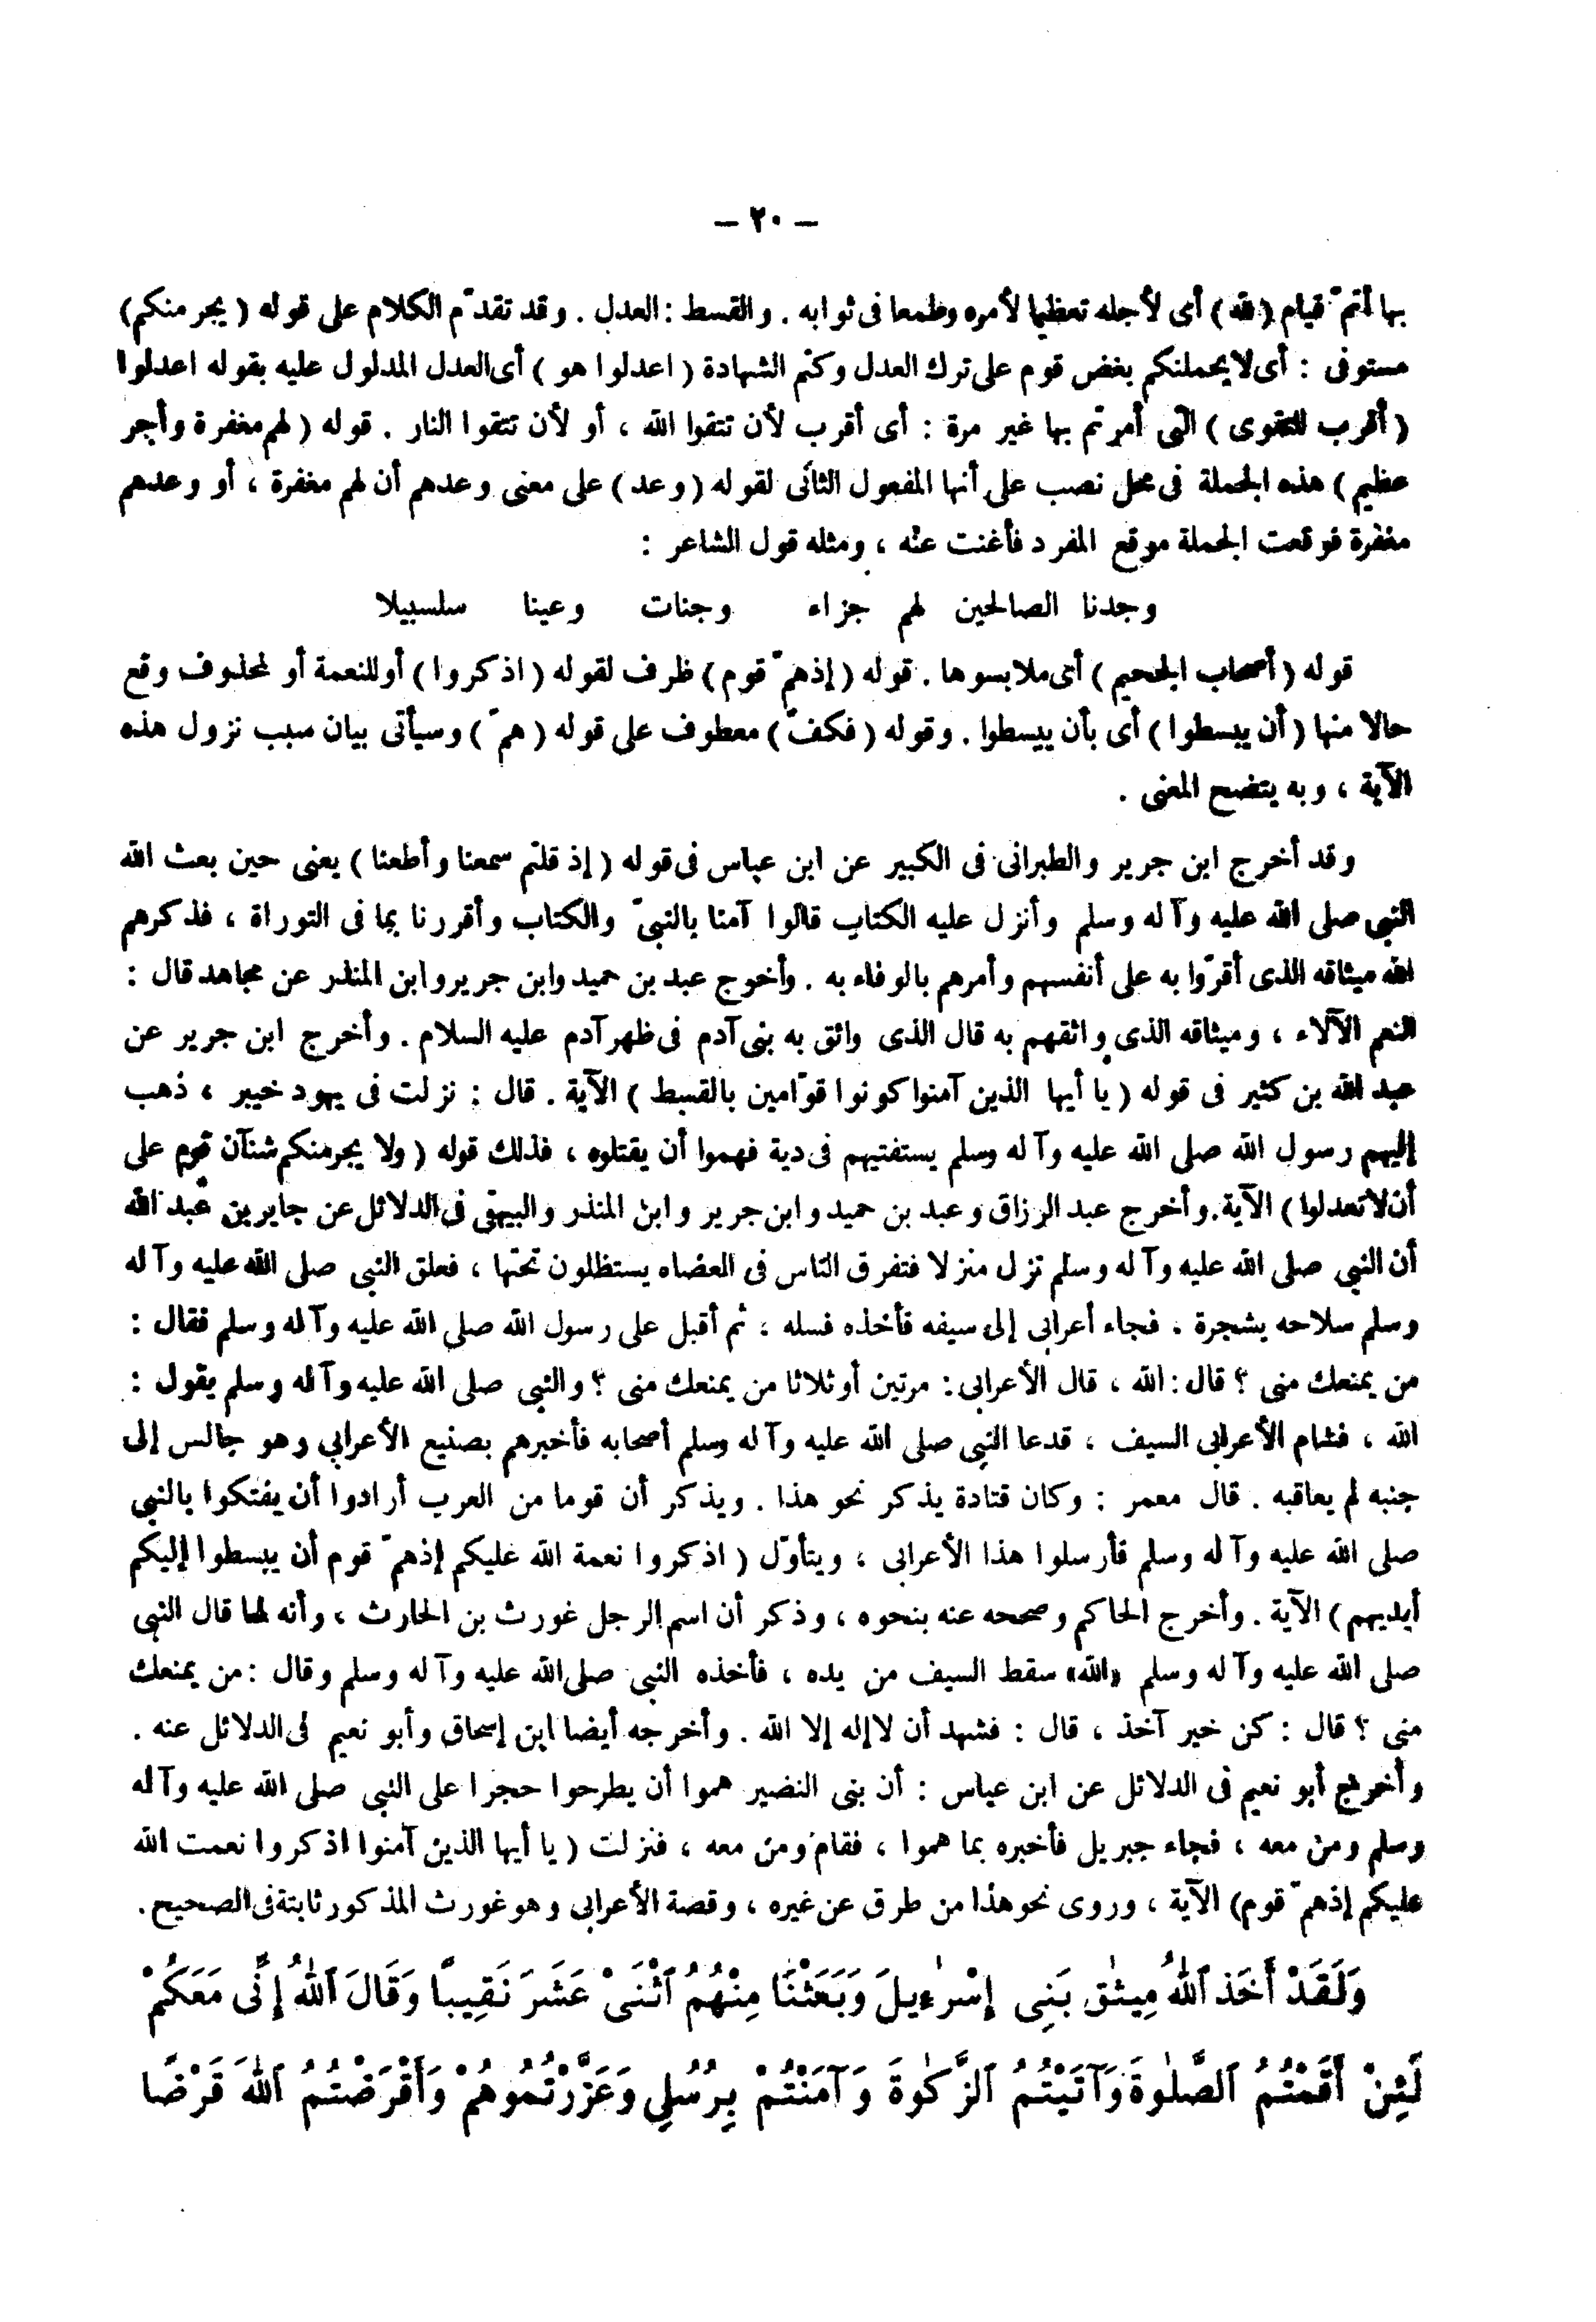 – ٢٠ –
بها أتمّ قيام (لله) أى لأجله تعظيما لأمره وطمعا فى ثوابه . والقسط : العدل . وقد تقدّم الكلام على قوله ( يجرمنكم)
مستوفى : أى لا يحملنكم بغض قوم على ترك العدل وكتم الشهادة ( اعدلوا هو ) أى العدل المدلول عليه بقوله اعدلوا
( أقرب للتقوى ) التى أمرتم بها غير مرة : أى أقرب لأن تتقوا الله ، أو لأن تتقوا النار . قوله ( لهم مغفرة وأجر
عظيم ) هذه الجملة فى محل نصب على أنها المفعول الثانى لقوله ( وعد ) على معنى وعدهم أن لهم مغفرة ، أو وعدهم
مغفرة فوقعت الجملة موقع المفرد فأغنت عنه ، ومثله قول الشاعر :
وجدنا الصالحين لهم جزاء وجنات وعينا سلسبيلا
قوله ( أصحاب الجحيم ) أى ملابسوها . قوله ( إذ همّ قوم ) ظرف لقوله ( اذكروا ) أو للنعمة أو لمحذوف وقع
حالا منها ( أن يبسطوا ) أى بأن يبسطوا . وقوله ( فكفّ ) معطوف على قوله ( همّ ) وسيأتى بيان سبب نزول هذه
الآية ، وبه يتضح المعنى .
وقد أخرج ابن جرير والطبرانى فى الكبير عن ابن عباس فى قوله ( إذ قلتم سمعنا وأطعنا ) يعنى حين بعث الله
النبى صلى الله عليه وآله وسلم وأنزل عليه الكتاب قالوا آمنا بالنبىّ والكتاب وأقررنا بما فى التوراة ، فذكرهم
الله ميثاقه الذى أقرّوا به على أنفسهم وأمرهم بالوفاء به . وأخرج عبد بن حميد وابن جرير وابن المنذر عن مجاهد قال :
النعم الآلاء ، وميثاقه الذى واثقهم به قال الذى واثق به بنى آدم فى ظهر آدم عليه السلام . وأخرج ابن جرير عن
عبد الله بن كثير فى قوله ( يا أيها الذين آمنوا كونوا قوّامين بالقسط ) الآية . قال : نزلت فى يهود خيبر ، ذهب
إليهم رسول الله صلى الله عليه وآله وسلم يستفتيهم فى دية فهموا أن يقتلوه ، فذلك قوله ( ولا يجرمنكم شنآن قوم على
أن لا تعدلوا ) الآية . وأخرج عبد الرزاق وعبد بن حميد وابن جرير وابن المنذر والبيهقى فى الدلائل عن جابر بن عبد الله
أن النبى صلى الله عليه وآله وسلم نزل منزلا فتفرق الناس فى العضاه يستظلون تحتها ، فعلق النبى صلى الله عليه وآله
وسلم سلاحه بشجرة ، فجاء أعرابى إلى سيفه فأخذه فسله ، ثم أقبل على رسول الله صلى الله عليه وآله وسلم فقال :
من يمنعك منى ؟ قال : الله ، قال الأعرابى : مرتين أو ثلاثا من يمنعك منى ؟ والنبى صلى الله عليه وآله وسلم يقول :
الله ، فشام الأعرابى السيف ، فدعا النبى صلى الله عليه وآله وسلم أصحابه فأخبرهم بصنيع الأعرابى وهو جالس إلى
جنبه لم يعاقبه . قال معمر : وكان قتادة يذكر نحو هذا . ويذكر أن قوما من العرب أرادوا أن يفتكوا بالنبى
صلى الله عليه وآله وسلم فأرسلوا هذا الأعرابى ، ويتأوّل ( اذكروا نعمة الله عليكم إذ همّ قوم أن يبسطوا إليكم
أيديهم ) الآية . وأخرج الحاكم وصححه عنه بنحوه ، وذكر أن اسم الرجل غورث بن الحارث ، وأنه لما قال النبى
صلى الله عليه وآله وسلم «الله» سقط السيف من يده ، فأخذه النبى صلى الله عليه وآله وسلم وقال : من يمنعك
منى ؟ قال : كن خير آخذ ، قال : فشهد أن لا إله إلا الله . وأخرجه أيضا ابن إسحاق وأبو نعيم فى الدلائل عنه .
وأخرج أبو نعيم فى الدلائل عن ابن عباس : أن بنى النضير هموا أن يطرحوا حجرا على النبى صلى الله عليه وآله
وسلم ومن معه ، فجاء جبريل فأخبره بما هموا ، فقام ومن معه ، فنزلت ( يا أيها الذين آمنوا اذكروا نعمت الله
عليكم إذ همّ قوم) الآية ، وروى نحو هذا من طرق عن غيره ، وقصة الأعرابى وهو غورث المذكور ثابتة فى الصحيح .
وَلَقَدْ أَخَذَ ٱللَّهُ مِيثَٰقَ بَنِى إِسْرَٰءِيلَ وَبَعَثْنَا مِنْهُمُ ٱثْنَىْ عَشَرَ نَقِيبًا وَقَالَ ٱللَّهُ إِنِّى مَعَكُمْ
لَئِنْ أَقَمْتُمُ ٱلصَّلَوٰةَ وَآتَيْتُمُ ٱلزَّكَوٰةَ وَآمَنْتُمْ بِرُسُلِى وَعَزَّرْتُمُوهُمْ وَأَقْرَضْتُمُ ٱللَّهَ قَرْضًا